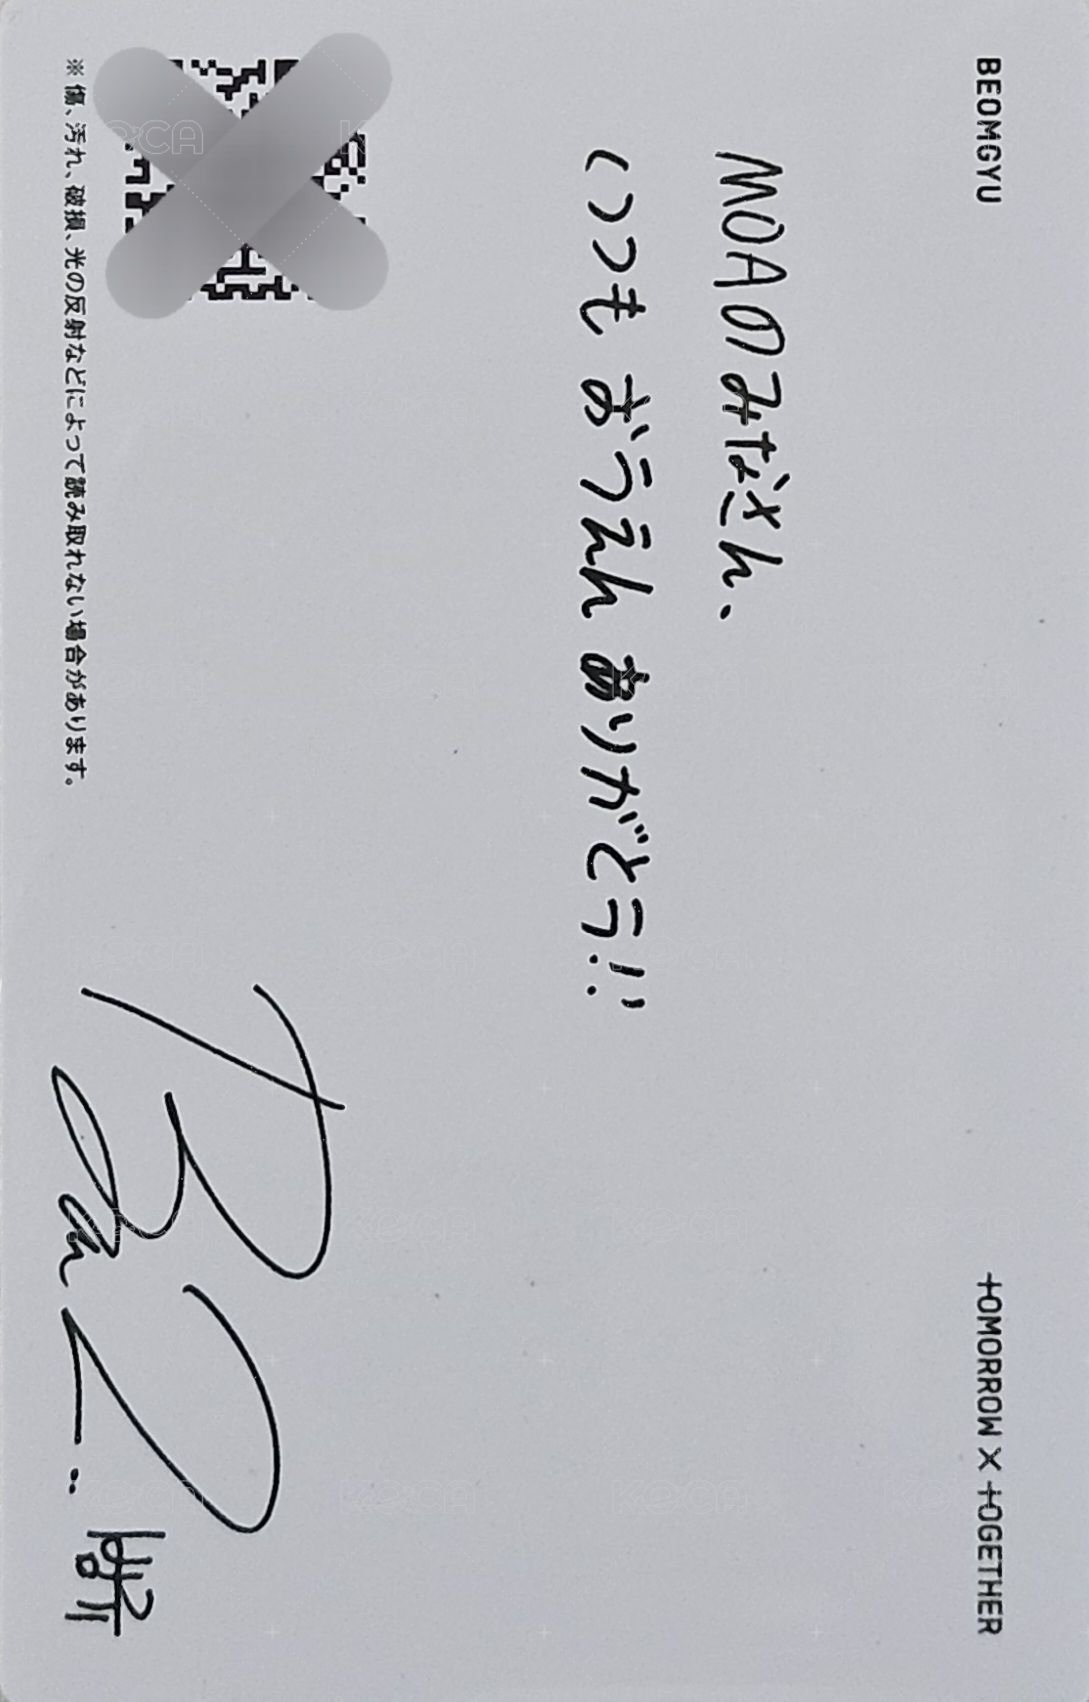 BEOMGYU
TOMORROW X TOGETHER
MOAのみなさん、
いつも おうえん ありがとう!!
범규
※傷、汚れ、破損、光の反射などによって読み取れない場合があります。